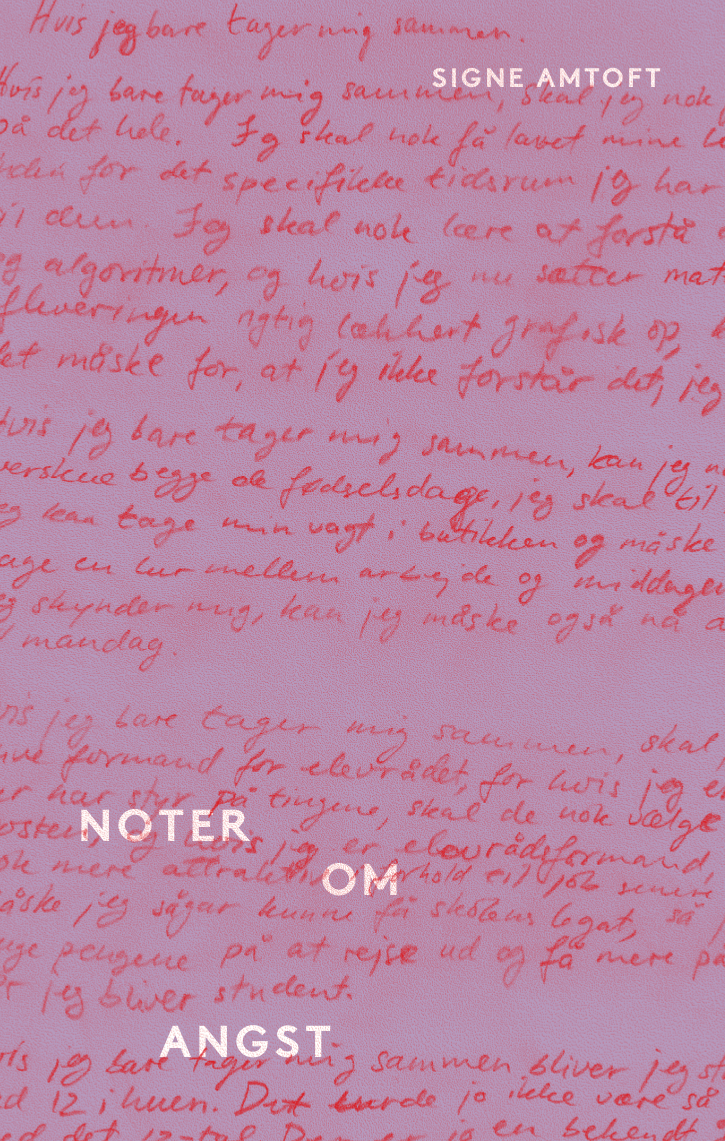 Hvis jeg bare tager mig sammen.
SIGNE AMTOFT
Hvis jeg bare tager mig sammen, skal jeg nok
på det hele. Jeg skal nok få lavet mine
inden for det specifikke tidsrum jeg har
til dem. Jeg skal nok lære at forstå
og algoritmer, og hvis jeg nu sætter mat
afleveringen rigtig lækkert grafisk op,
det måske for, at jeg ikke forstår det, jeg
Hvis jeg bare tager mig sammen, kan jeg
overskue begge de fødselsdage, jeg skal til
jeg kan tage min vagt i butikken og måske
tage en lur mellem arbejde og middagen
jeg skynder mig, kan jeg måske også nå
mandag.
Hvis jeg bare tager mig sammen, skal
blive formand for elevrådet, for hvis jeg
er har styr på tingene, skal de nok vælge
NOTER
posten, og hvis jeg er elevrådsformand,
nok mere attraktiv i forhold til job senere
OM
måske jeg sågar kunne få skolens legat, så
bruge pengene på at rejse ud og få mere på
når jeg bliver student.
ANGST
Hvis jeg bare tager mig sammen bliver jeg
med 12 i huen. Det burde jo ikke være så
med det 12-tal. Der er jo en bekendt